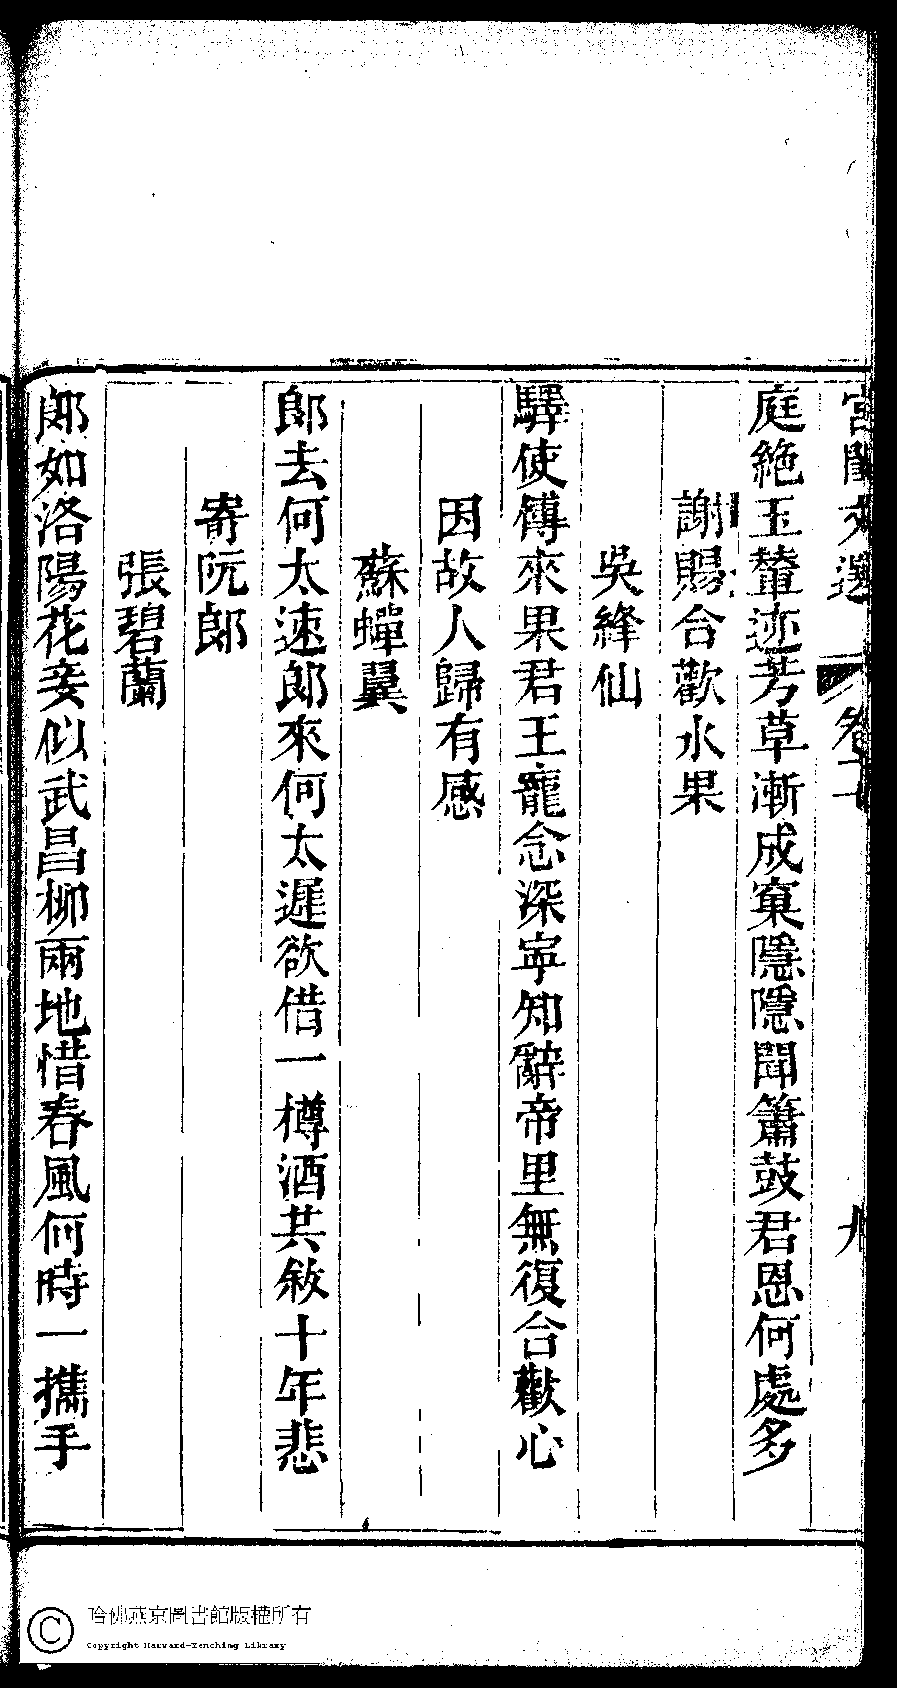 宮閨文選 卷十 九
庭絶玉輦迹芳草漸成窠隱隱聞簫鼓君恩何處多
謝賜合歡水果
吳絳仙
驛使傳來果君王寵念深寧知辭帝里無復合歡心
因故人歸有感
蘇蟬翼
郎去何太速郎來何太遲欲借一樽酒共敘十年悲
寄阮郎
張碧蘭
郎如洛陽花妾似武昌柳兩地惜春風何時一攜手
哈佛燕京圖書館版權所有
Copyright Harvard-Yenching Library